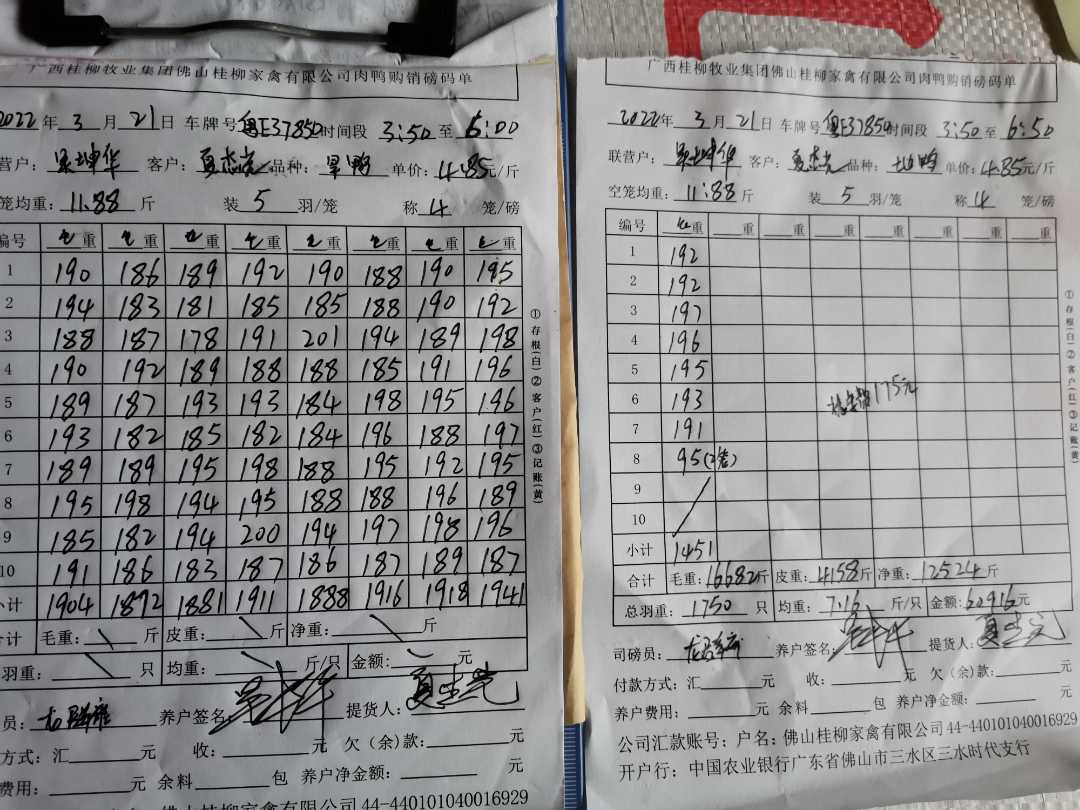 广西桂柳牧业集团佛山桂柳家禽有限公司肉鸭购销磅码单
2022年 3 月 21 日 车牌号 粤E37850 时间段 3:50 至 6:00
营户: 吴坤华 客户: 夏志光 品种: 旱鸭 单价: 4.85元/斤
笼均重: 11.88 斤 装 5 羽/笼 称 4 笼/磅
编号 重 重 重 重 重 重 重 重
1 190 186 189 192 190 188 190 195
2 194 183 181 185 185 188 190 192
3 188 187 178 191 201 194 189 198
4 190 192 189 188 188 185 191 196
5 189 187 193 193 184 198 195 196
6 193 182 185 182 184 196 188 197
7 189 189 195 198 188 195 192 195
8 195 198 194 195 188 188 196 189
9 185 182 194 200 194 197 198 196
10 191 186 183 187 186 187 189 187
小计 1904 1892 1881 1911 1888 1916 1918 1941
合计 毛重: 斤 皮重: 斤 净重: 斤
羽重: 只 均重: 斤/只 金额: 元
员: 养户签名: 提货人:
方式: 汇 元 收: 元 欠(余)款: 元
费用: 元 余料 包 养户净金额: 元
佛山桂柳家禽有限公司44-440101040016929
①存根(白)②客户(红)③记账(黄)
广西桂柳牧业集团佛山桂柳家禽有限公司肉鸭购销磅码单
2022 年 3 月 21 日 车牌号 粤E37850 时间段 3:50 至 6:50
联营户: 吴坤华 客户: 夏志光 品种: 鸭 单价: 4.85元/斤
空笼均重: 11.88 斤 装 5 羽/笼 称 4 笼/磅
编号 重 重 重 重 重 重 重 重
1 192
2 192
3 197
4 196
5 195
6 193 175元
7 191
8 95(2笼)
9
10
小计 1451
合计 毛重: 16682斤 皮重: 4158斤 净重: 12524斤
总羽重: 1750 只 均重: 7.16 斤/只 金额: 60916元
司磅员: 养户签名: 提货人:
付款方式: 汇 元 收: 元 欠(余)款: 元
养户费用: 元 余料 包 养户净金额: 元
公司汇款账号: 户名: 佛山桂柳家禽有限公司44-440101040016929
开户行: 中国农业银行广东省佛山市三水区三水时代支行
①存根(白)②客户(红)③记账(黄)